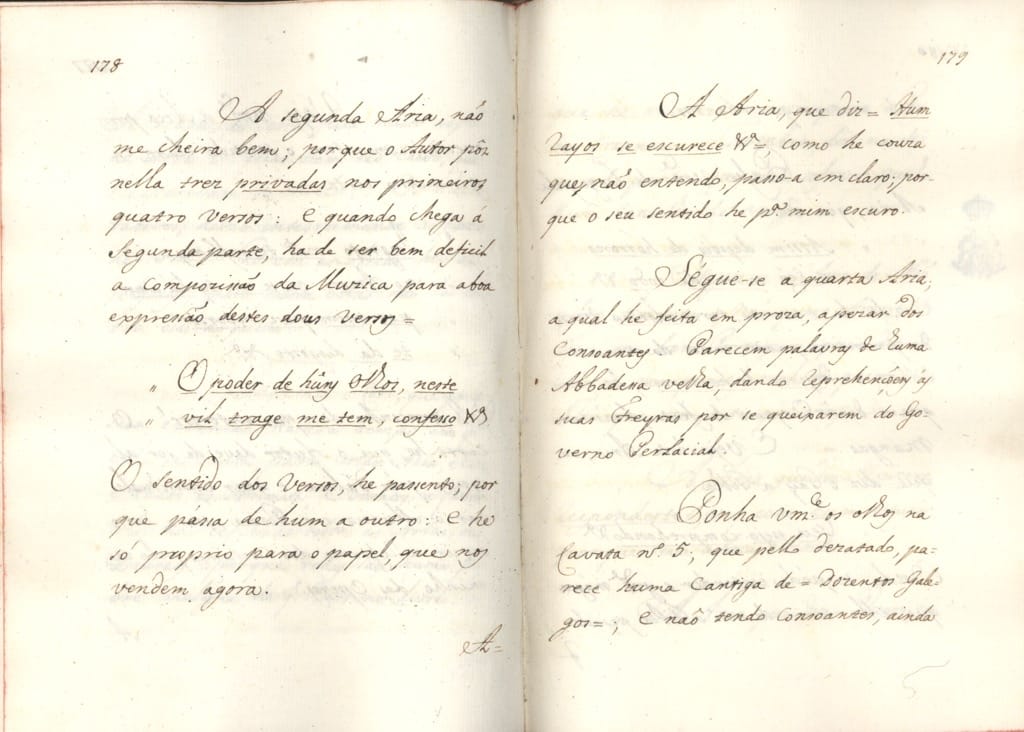 178
A segunda Aria, não
me cheira bem; porque o Autor pôz
nella trez privadas nos primeiros
quatro versos: e quando chega á
segunda parte, ha de ser bem deficil
a compozissão da Muzica para aboa
expressão destes dous versos =
" O poder de hûns olhos, neste
" vil trage me tem, confesso &ª
O sentido dos versos, he passento; por
que pássa de hum a outro: e he
só proprio para o papel, que nos
vendem agora.
A=
179
A Aria, que diz = Hum
rayos se escurece &ª =, como he couza
que não entendo, passo-a em claro; por-
que o seu sentido he pª mim escuro.
Ségue-se a quarta Aria,
a qual he feita em proza, apezar dos
Consoantes. Parecem palavras de huma
Abbadessa velha, dando reprehenções ás
suas Freyras por se queixarem do Go-
verno Perlacial.
Ponha vm.ce os olhos na
Cavata nº 5; que pello dezatado, pa-
rece huma Cantiga de = Dozentos Gale-
gos =; e não tendo consoantes, ainda